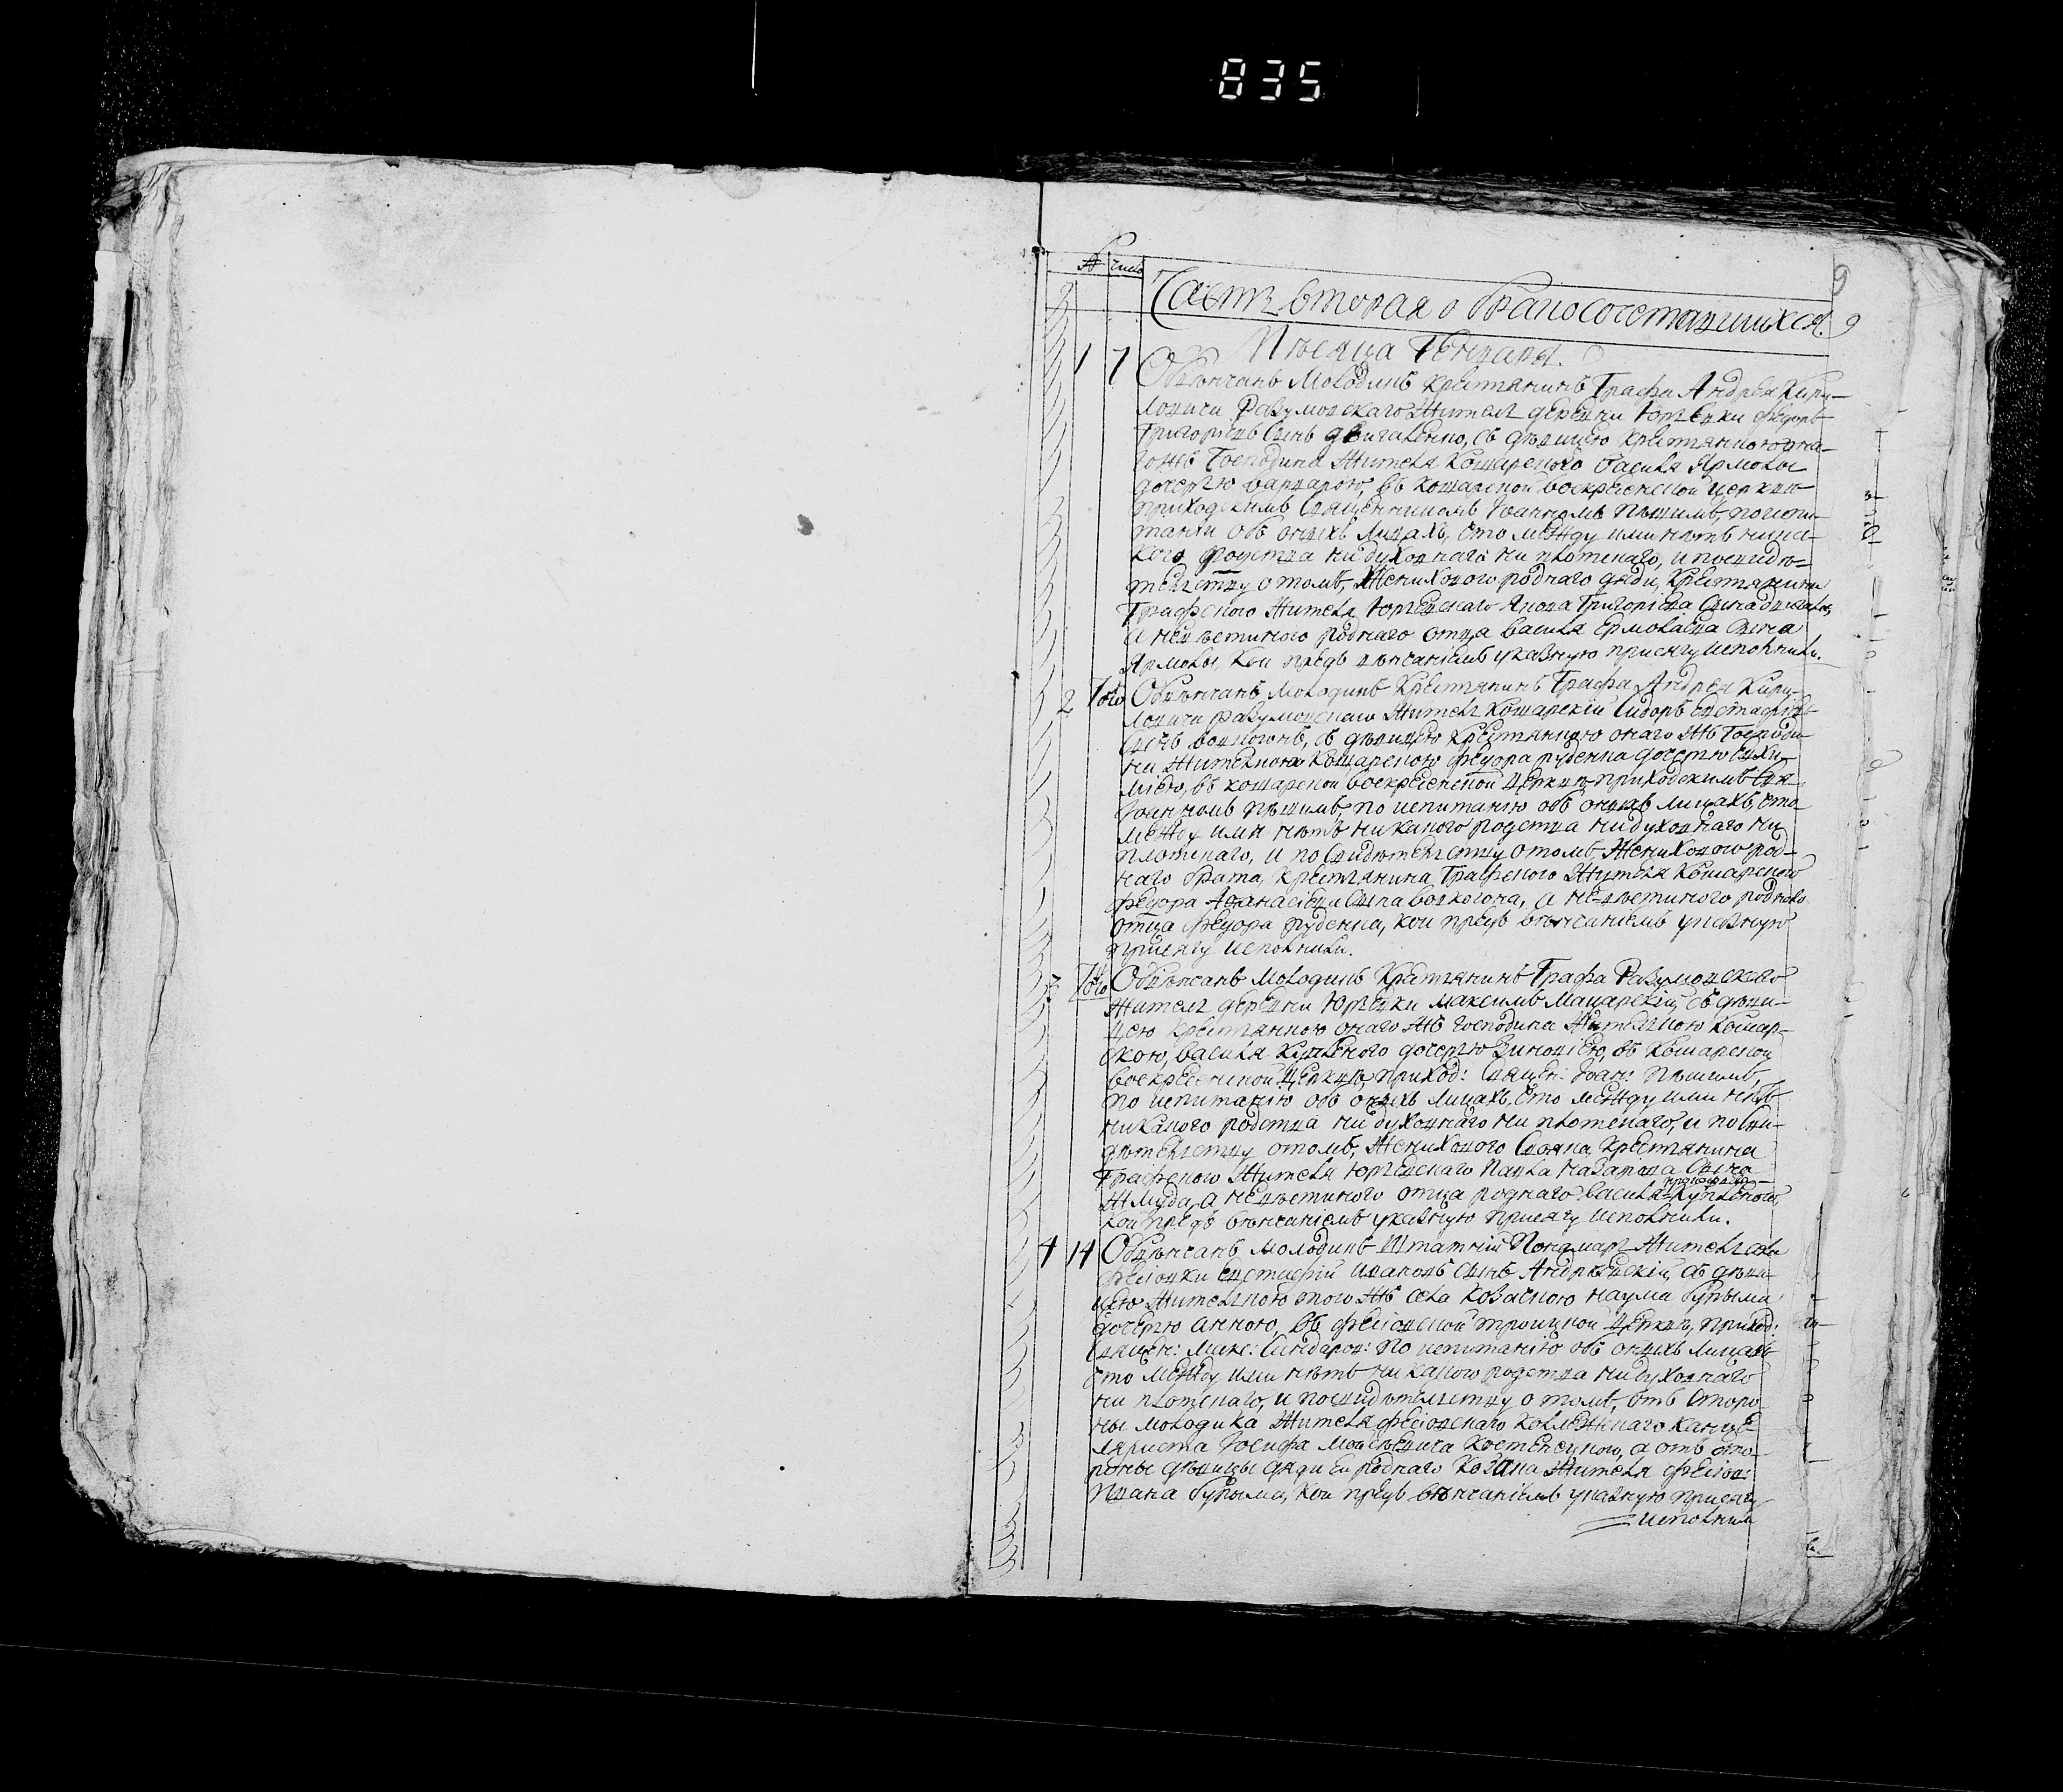 835
№ число
9
Часть вторая о бракосочетавшихся. 9
Мѣсяца Генваря.
1 7 Обвѣнчанъ молодикъ крестянинъ Графа Андрея Кири-
ловича Разумовскаго жители деревни Юрьевки Федоръ
Григоріевъ сынъ, съ дѣвицею крестянкою она-
гожъ Господина жителя Кошарского Василя Ярмолы
дочерью варварою, въ кошарской воскресенской церкви
приходскимъ священникомъ Іоанномъ, по испи-
танїи объ онихъ лицахъ, что между ими нѣтъ ника-
кого родства ни духовнаго ни плотскаго, и по свидѣ-
телству о томъ, женихового роднаго дяди, крестянина
Графского жителя Юрьевскаго Якова Григоріева сина
а невѣстиного роднаго отца василя Ермолаева сина
Ярмолы, кои предъ вѣнчаніемъ указную присягу исполнили.
2 7ого Обвѣнчанъ молодикъ крестянинъ Графа Андрея Кири-
ловича Разумовского житель кошарскій Сидоръ Евстафіевъ
синъ волкогонъ, съ дѣвицею крестянкою онаго жъ Господи-
на жителкою кошарскою Федора руденка дочерю Евхи-
міею, въ кошарской воскресенской церкви приходскимъ свя:
Іоанномъ, по испитанію объ онихъ лицахъ, что
между ими нѣтъ никакого родства ни духовнаго ни
плотскаго, и по свидѣтелству о томъ, женихового род-
наго брата, крестянина Графского жителя кошарского
Федора Афанасіева сина волкогона, а невѣстиного роднаго
отца Федора руденка, кои предъ вѣнчаніемъ указную
присягу исполнили.
3 7ого Обвѣнчанъ молодикъ крестянинъ Графа Разумовского
жителъ деревни Юрьевки максимъ Мацарскій, съ дѣви-
цею крестянкою онаго жъ господина жителкою кошар-
скою, василя дочерю Зиновіею, въ кошарской
воскресенской церкви, приход: священ: Іоан:
по испитанію объ онихъ лицахъ, что между ими нѣтъ
никакого родства ни духовнаго ни плотскаго, и по сви-
дѣтелству о томъ, женихового свояка, крестянина
Графского жителя юрьевскаго Павла назарова сина
Жлуда, а невѣстиного отца роднаго василя
кои предъ вѣнчаніемъ указную присягу исполнили.
4 14 Обвѣнчанъ молодикъ штатній понамарь жителъ села
Фесіовки Евстафій Ивановъ синъ Андріевскій, съ дѣви-
цею жителкою того жъ села козачкою наума
дочерю Анною, въ фесіовской троицкой церкви, приход:
священ: Макс: Синдаров: по испитанію объ онихъ лицахъ
что между ими нѣтъ никакого родства ни духовнаго
ни плотскаго, и по свидѣтелству о томъ, отъ сторо-
ны молодика жителя фесіовского коллежнаго канце-
ляриста Іосифа Моисѣевича, а отъ сто-
роны дѣвицы дяди ей роднаго козака жителя фесіов:
Ивана, кои предъ вѣнчаніемъ указную присягу
исполнили